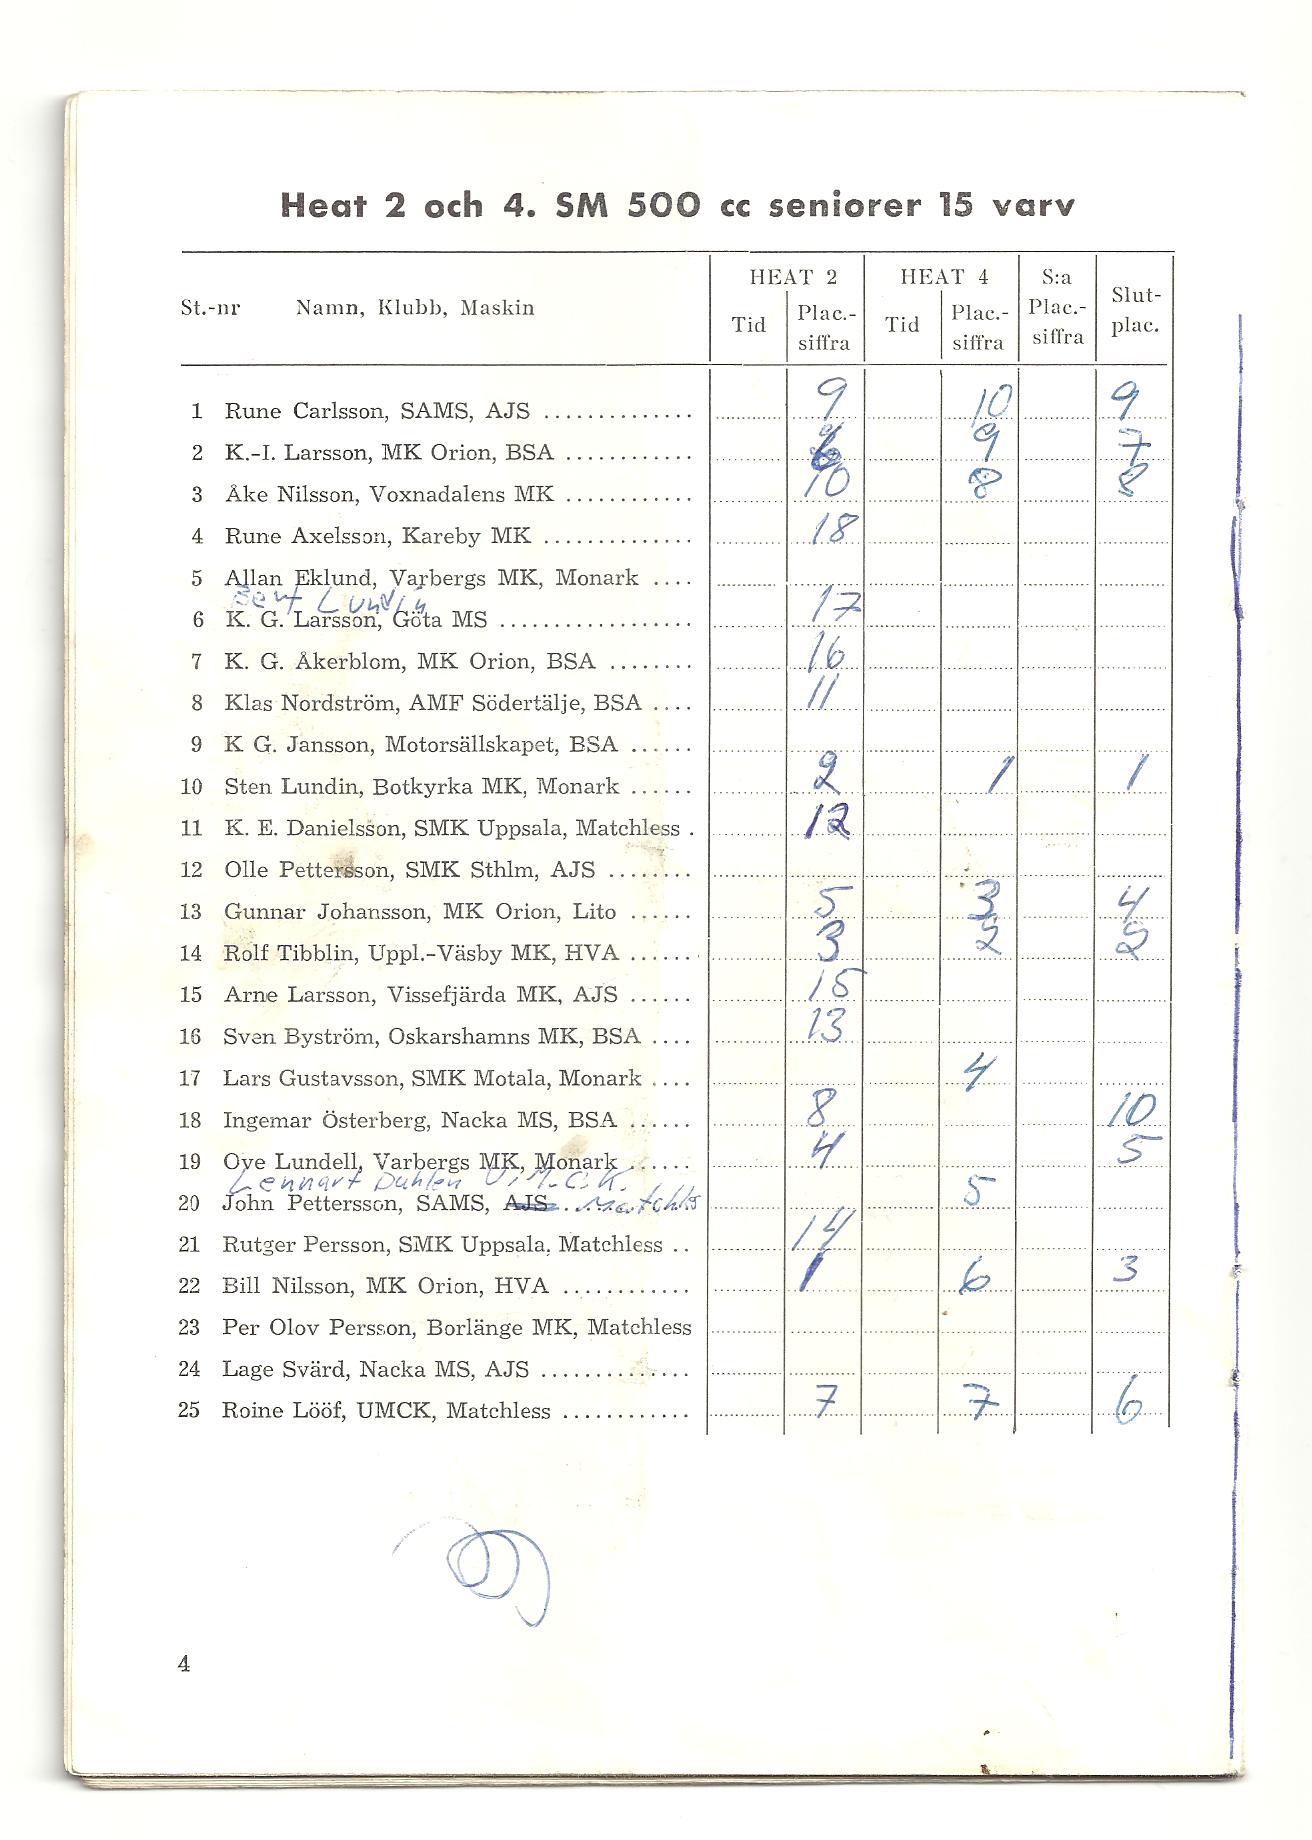 Heat 2 och 4. SM 500 cc seniorer 15 varv
HEAT 2 HEAT 4 S:a Slut-
St.-nr Namn, Klubb, Maskin Tid Plac.- Tid Plac.- Plac.- plac.
siffra siffra siffra
1 Rune Carlsson, SAMS, AJS .............. 9 10 9
2 K.-I. Larsson, MK Orion, BSA ............ 6 9 7
3 Åke Nilsson, Voxnadalens MK ............ 10 8 8
4 Rune Axelsson, Kareby MK .............. 18
5 Allan Eklund, Varbergs MK, Monark ....
Bert Lundin
6 K. G. Larsson, Göta MS .................. 17
7 K. G. Åkerblom, MK Orion, BSA ........ 16
8 Klas Nordström, AMF Södertälje, BSA .... 11
9 K G. Jansson, Motorsällskapet, BSA ......
10 Sten Lundin, Botkyrka MK, Monark ...... 2 1 1
11 K. E. Danielsson, SMK Uppsala, Matchless . 12
12 Olle Pettersson, SMK Sthlm, AJS ........
13 Gunnar Johansson, MK Orion, Lito ...... 5 3 4
14 Rolf Tibblin, Uppl.-Väsby MK, HVA ...... 3 2 2
15 Arne Larsson, Vissefjärda MK, AJS ...... 15
16 Sven Byström, Oskarshamns MK, BSA .... 13
17 Lars Gustavsson, SMK Motala, Monark .... 4
18 Ingemar Österberg, Nacka MS, BSA ...... 8 10
19 Ove Lundell, Varbergs MK, Monark ...... 4 5
Lennart Dahlen U.M.C.K.
20 John Pettersson, SAMS, AJS Matchls 5
21 Rutger Persson, SMK Uppsala, Matchless .. 14
22 Bill Nilsson, MK Orion, HVA ............ 1 6 3
23 Per Olov Persson, Borlänge MK, Matchless
24 Lage Svärd, Nacka MS, AJS ..............
25 Roine Lööf, UMCK, Matchless ............ 7 7 6
4